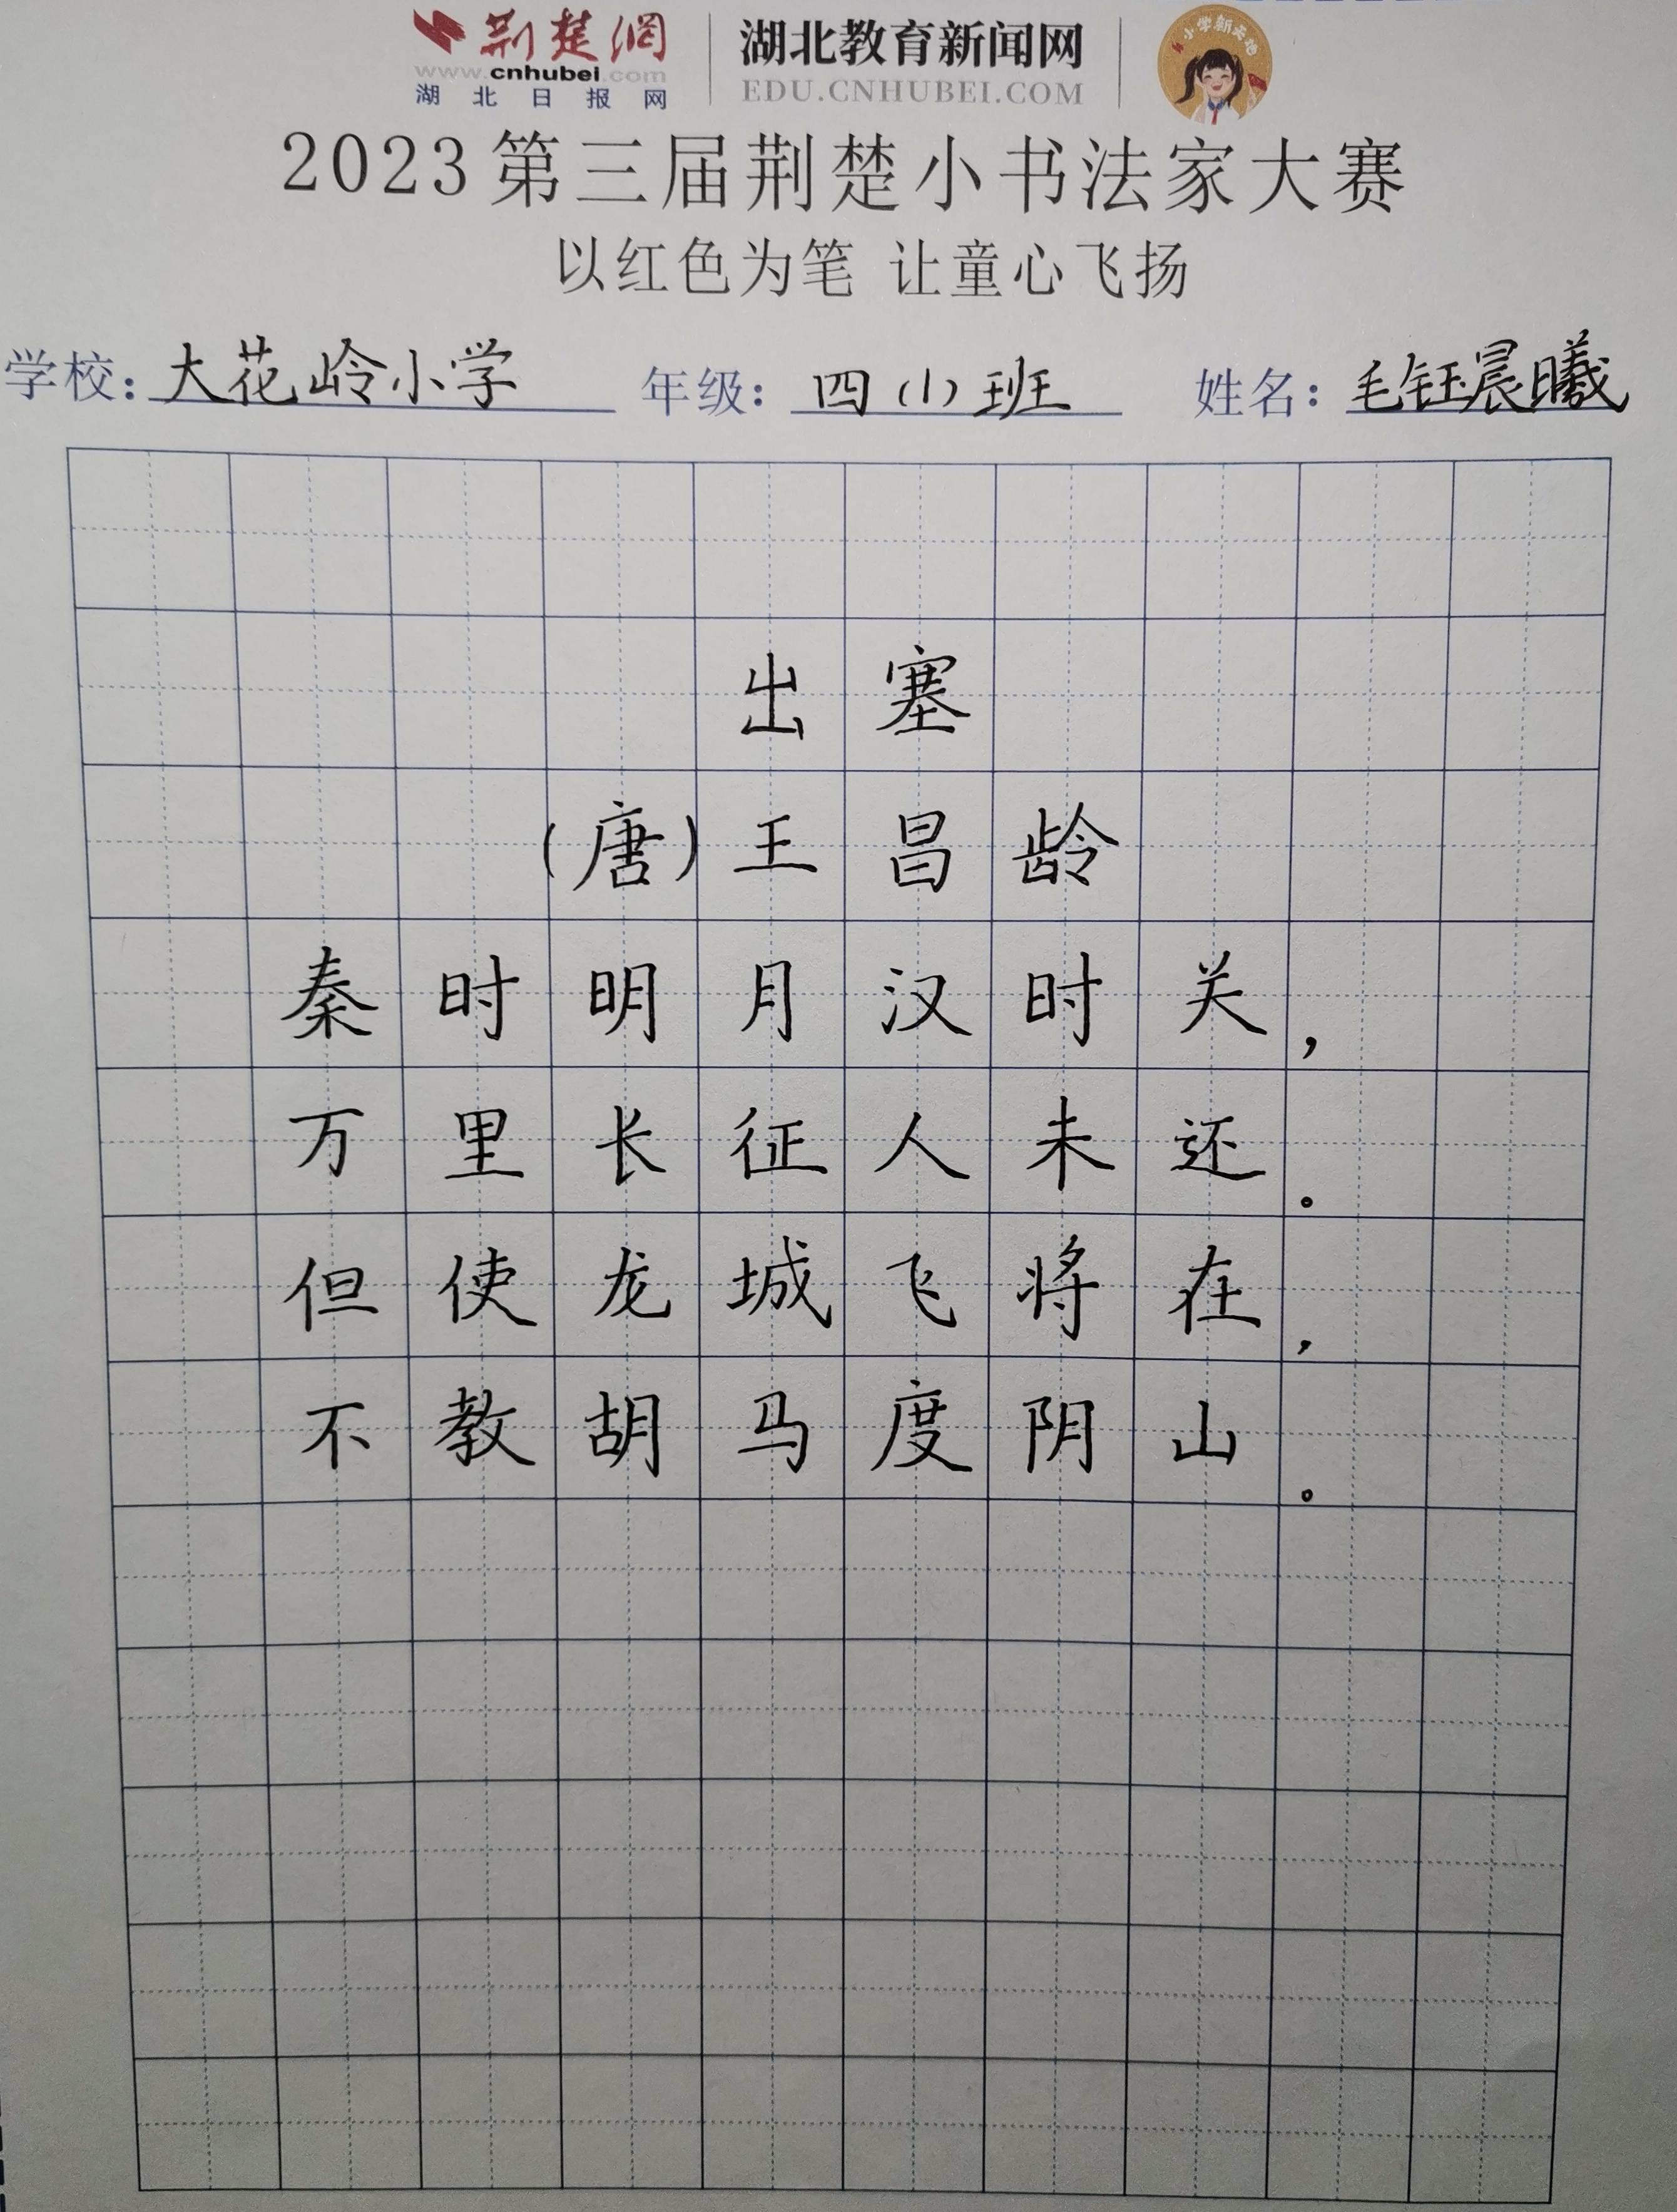 荆楚网 湖北教育新闻网 小学新天地
www.cnhubei.com EDU.CNHUBEI.COM
湖北日报网
2023第三届荆楚小书法家大赛
以红色为笔 让童心飞扬
学校：大花岭小学 年级：四（1）班 姓名：毛钰晨曦
出塞
（唐）王昌龄
秦时明月汉时关，
万里长征人未还。
但使龙城飞将在，
不教胡马度阴山。